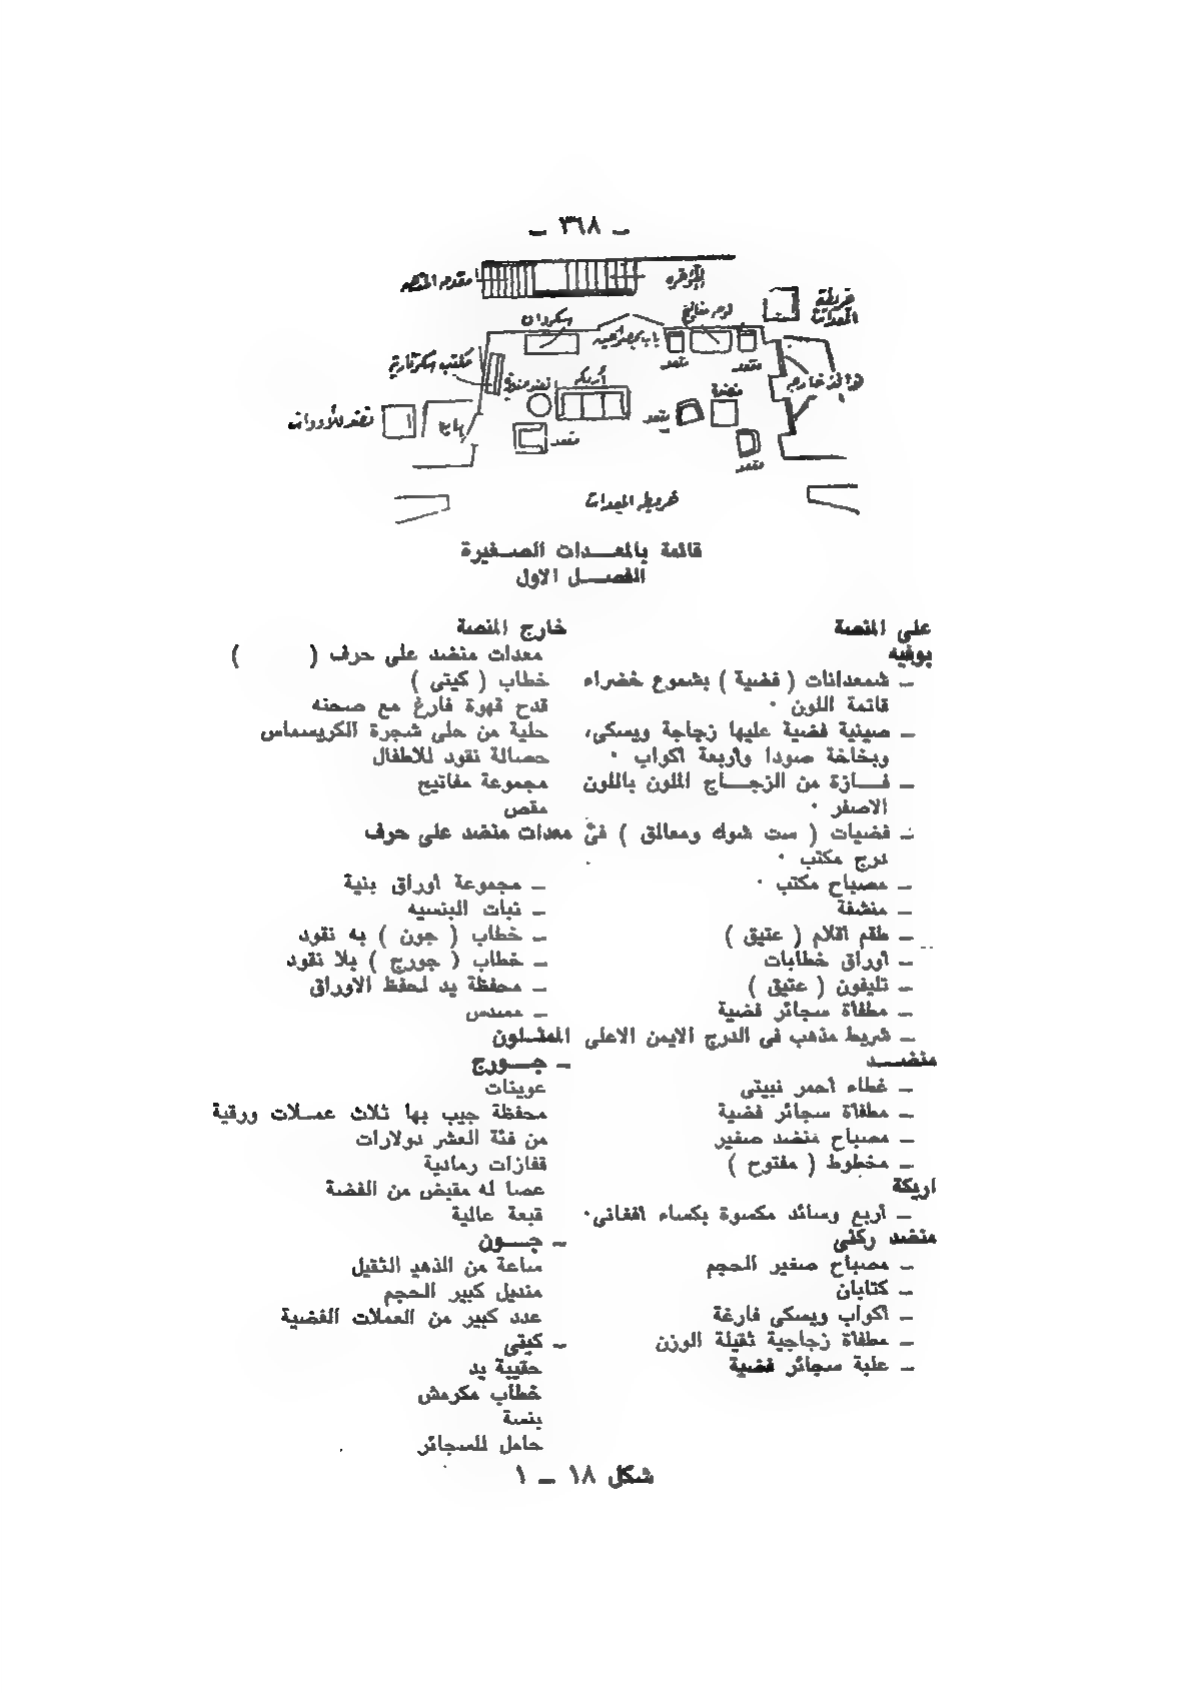 ـ ٣٦٨ ـ
باب
أريكة
منضدة
مقعد
مقعد
مقعد
مقعد
مقعد
خريطة المعدات
قائمة بالمعـــدات الصـــغيرة
الفصـــل الاول
على المنصة
بوفيه
ـ شمعدانات ( فضية ) بشموع خضراء
قاتمة اللون ٠
ـ صينية فضية عليها زجاجة ويسكى،
وبخاخة صودا وأربعة أكواب ٠
ـ فـــازة من الزجـــاج الملون باللون
الاصفر ٠
ـ فضيات ( ست شوك ومعالق ) فى
درج مكتب ٠
ـ مصباح مكتب ٠
ـ منشفة
ـ طقم أقلام ( عتيق )
ـ أوراق خطابات
ـ تليفون ( عتيق )
ـ مطفأة سجائر فضية
ـ شريط مذهب فى الدرج الايمن الاعلى
منضـــد
ـ غطاء أحمر نبيتى
ـ مطفأة سجائر فضية
ـ مصباح منضد صغير
ـ مخطوط ( مفتوح )
اريكة
ـ أربع وسائد مكسوة بكساء أفغانى٠
منضد ركنى
ـ مصباح صغير الحجم
ـ كتابان
ـ أكواب ويسكى فارغة
ـ مطفأة زجاجية ثقيلة الوزن
ـ علبة سجائر فضية
خارج المنصة
معدات منضد على حرف (        )
خطاب ( كيتى )
قدح قهوة فارغ مع صحنه
حلية من حلى شجرة الكريسماس
حصالة نقود للاطفال
مجموعة مفاتيح
مقص
معدات منضد على حرف
ـ مجموعة أوراق بنية
ـ نبات البنسيه
ـ خطاب ( جون ) به نقود
ـ خطاب ( جورج ) بلا نقود
ـ محفظة يد لحفظ الاوراق
ـ مسدس
الممثـلون
ـ جـــورج
عوينات
محفظة جيب بها ثلاث عمـلات ورقية
من فئة العشر دولارات
قفازات رمادية
عصا له مقبض من الفضة
قبعة عالية
ـ جـــون
ساعة من الذهب الثقيل
منديل كبير الحجم
عدد كبير من العملات الفضية
ـ كيتى
حقيبة يد
خطاب مكرمش
بنسة
حامل للسجائر
شكل ١٨ ـ ١